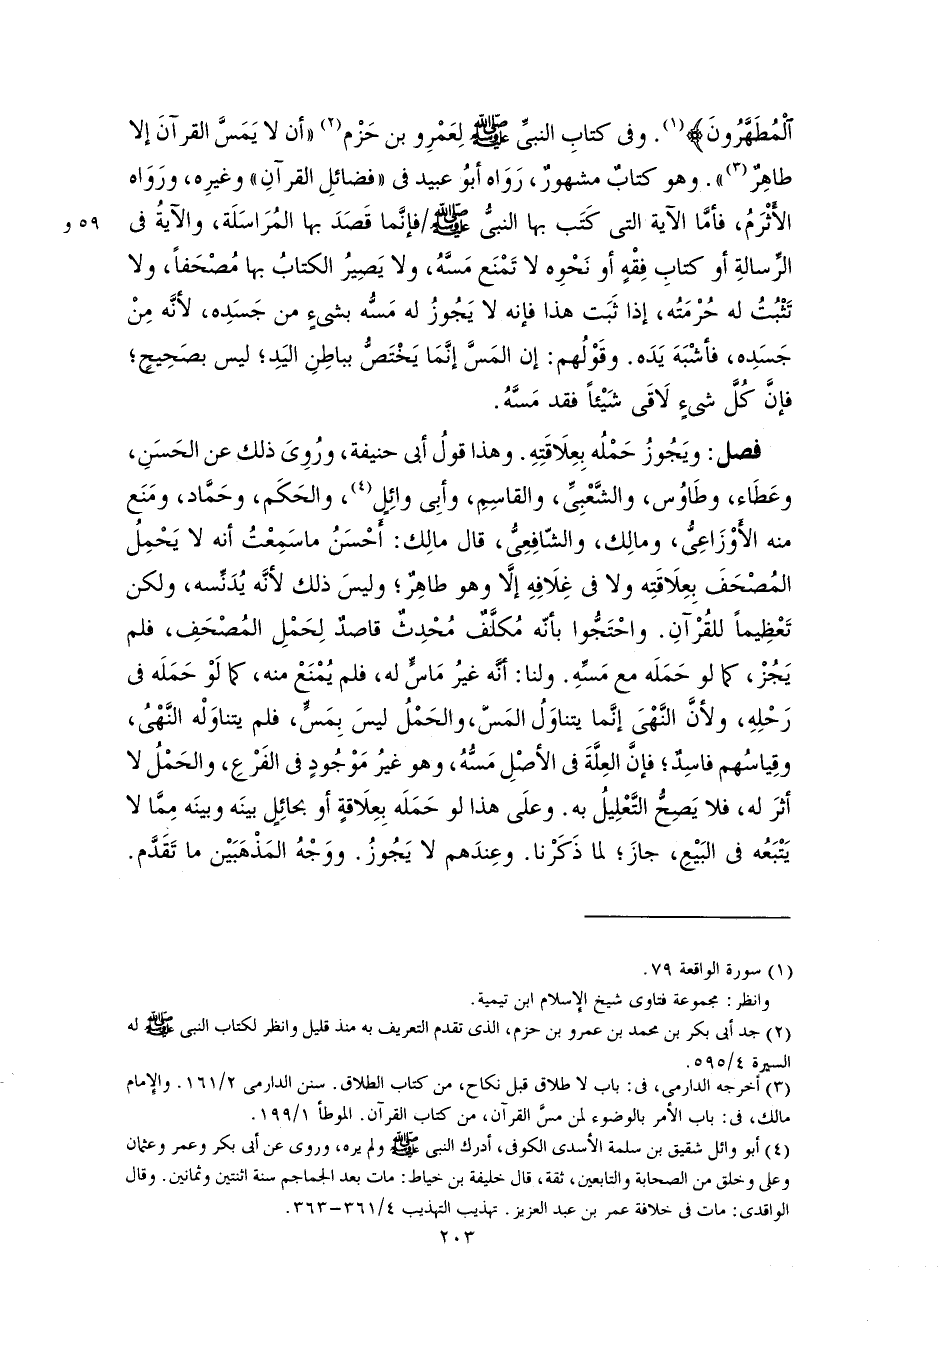 ٱلْمُطَهَّرُونَ﴾(١). وفى كتابِ النبىِّ ﷺ لِعَمْرِو بن حَزْم(٢) «أن لا يَمَسَّ القرآنَ إلا
طاهِرٌ(٣)». وهو كتابٌ مشهورٌ، رَوَاه أبوُ عبيد فى «فضائلِ القرآنِ» وغيرِه، ورَوَاه
الأَثْرَمُ، فأمَّا الآية التى كَتَب بها النبىُّ ﷺ/فإنَّما قَصَدَ بها المُرَاسَلَة، والآيةُ فى ٥٩ و
الرِّسالةِ أو كتابِ فِقْهٍ أو نَحْوِه لا تَمْنَع مَسَّهُ، ولا يَصِيرُ الكتابُ بها مُصْحَفاً، ولا
تَثْبُتُ له حُرْمَتُه، إذا ثَبَت هذا فإنه لا يَجُوزُ له مَسُّه بشىءٍ من جَسَدِه، لأنَّه مِنْ
جَسَدِه، فأشْبَهَ يَدَه. وقَوْلُهم: إن المَسَّ إنَّمَا يَخْتَصُّ بباطِنِ اليَدِ؛ ليس بصَحِيحٍ؛
فإنَّ كُلَّ شىءٍ لَاقَى شَيْئاً فقد مَسَّهُ.
فصل: ويَجُوزُ حَمْلُه بِعِلَاقَتِهِ. وهذا قولُ أبى حنيفة، ورُوِىَ ذلك عن الحَسَنِ،
وعَطَاء، وطَاوُس، والشَّعْبِىِّ، والقاسِمِ، وأبِى وائِلٍ(٤)، والحَكَمِ، وحَمَّاد، ومَنَع
منه الأَوْزَاعِىُّ، ومالِك، والشَّافِعِىُّ، قال مالِك: أَحْسَنُ ماسَمِعْتُ أنه لا يَحْمِلُ
المُصْحَفَ بِعِلَاقَتِه ولا فى غِلَافِهِ إلَّا وهو طاهِرٌ؛ وليسَ ذلك لأنَّه يُدَنِّسه، ولكن
تَعْظِيماً للقُرْآنِ. واحْتَجُّوا بأنَّه مُكلَّفٌ مُحْدِثٌ قاصدٌ لِحَمْلِ المُصْحَفِ، فلم
يَجُزْ، كما لو حَمَلَه مع مَسِّهِ. ولنا: أنَّه غيرُ مَاسٍّ له، فلم يُمْنَعْ منه، كما لَوْ حَمَلَه فى
رَحْلِهِ، ولأنَّ النَّهْىَ إنَّما يتناوَلُ المَسّ،والحَمْلُ ليسَ بِمَسٍّ، فلم يتناوَلْه النَّهْىُ،
وقِياسُهم فاسِدٌ؛ فإنَّ العِلَّةَ فى الأصْلِ مَسُّهُ، وهو غيرُ مَوْجُودٍ فى الفَرْعِ، والحَمْلُ لا
أثرَ له، فلا يَصِحُّ التَّعْلِيلُ به. وعلَى هذا لو حَمَلَه بِعِلاقةٍ أو بحائلٍ بينَه وبينَه مِمَّا لا
يَتْبَعُه فى البَيْعِ، جازَ؛ لما ذَكَرْنا. وعِندَهم لا يَجُوزُ. ووَجْهُ المَذْهَبَيْن ما تَقَدَّم.
(١) سورة الواقعة ٧٩.
وانظر: مجموعة فتاوى شيخ الإسلام ابن تيمية.
(٢) جد أبى بكر بن محمد بن عمرو بن حزم، الذى تقدم التعريف به منذ قليل وانظر لكتاب النبى ﷺ له
السيرة ٥٩٥/٤.
(٣) أخرجه الدارمى، فى: باب لا طلاق قبل نكاح، من كتاب الطلاق. سنن الدارمى ١٦١/٢. والإمام
مالك، فى: باب الأمر بالوضوء لمن مسَّ القرآن، من كتاب القرآن. الموطأ ١٩٩/١.
(٤) أبو وائل شقيق بن سلمة الأسدى الكوفى، أدرك النبى ﷺ ولم يره، وروى عن أبى بكر وعمر وعثمان
وعلى وخلق من الصحابة والتابعين، ثقة، قال خليفة بن خياط: مات بعد الجماجم سنة اثنتين وثمانين. وقال
الواقدى: مات فى خلافة عمر بن عبد العزيز. تهذيب التهذيب ٣٦١/٤-٣٦٣.
٢٠٣